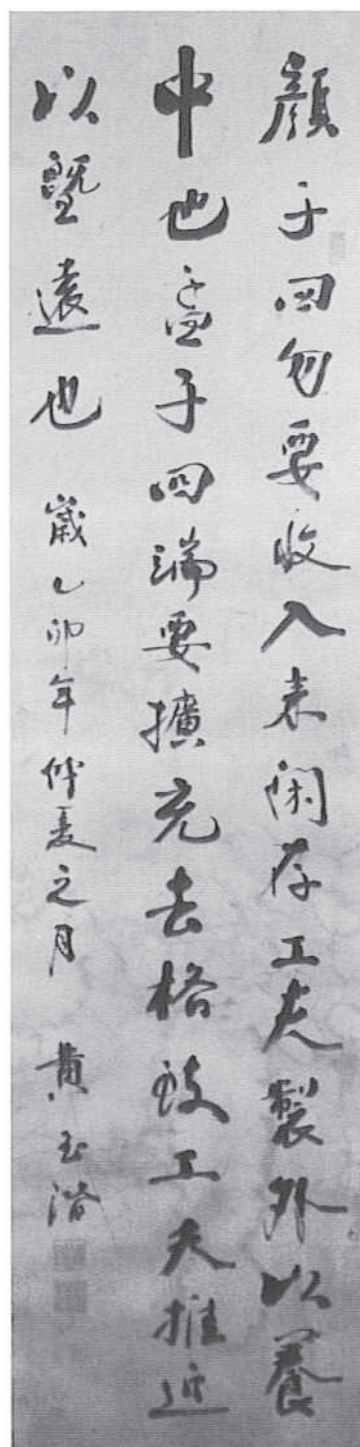 顏子四勿要收入來閑存工夫製外以養
中也孟子四端要擴充去格致工夫推近
以暨遠也　歲乙卯年仲夏之月　黃玉階